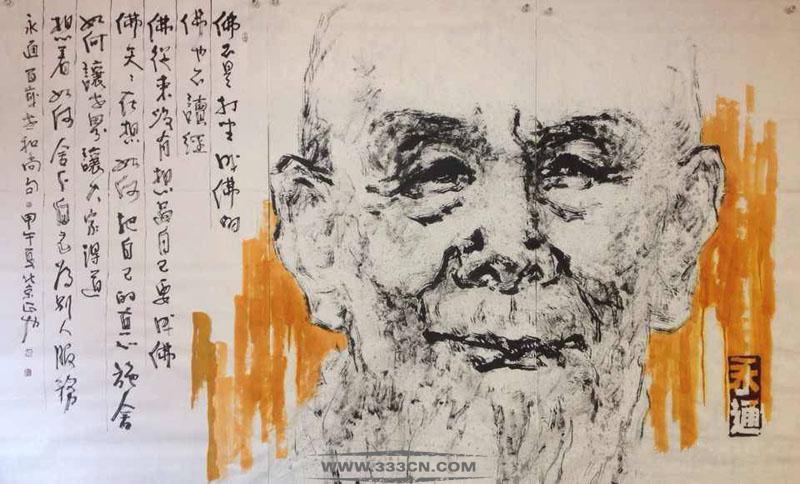 佛不是打坐成佛的
佛也不讀經
佛從来没有想過自己要成佛
佛天〻在想如何把自己的真心施舍
如何讓世界讓大家得道
想着如何舍下自己為别人服務
永通百歲老和尚句。甲午夏北京
永通
WWW.333CN.COM